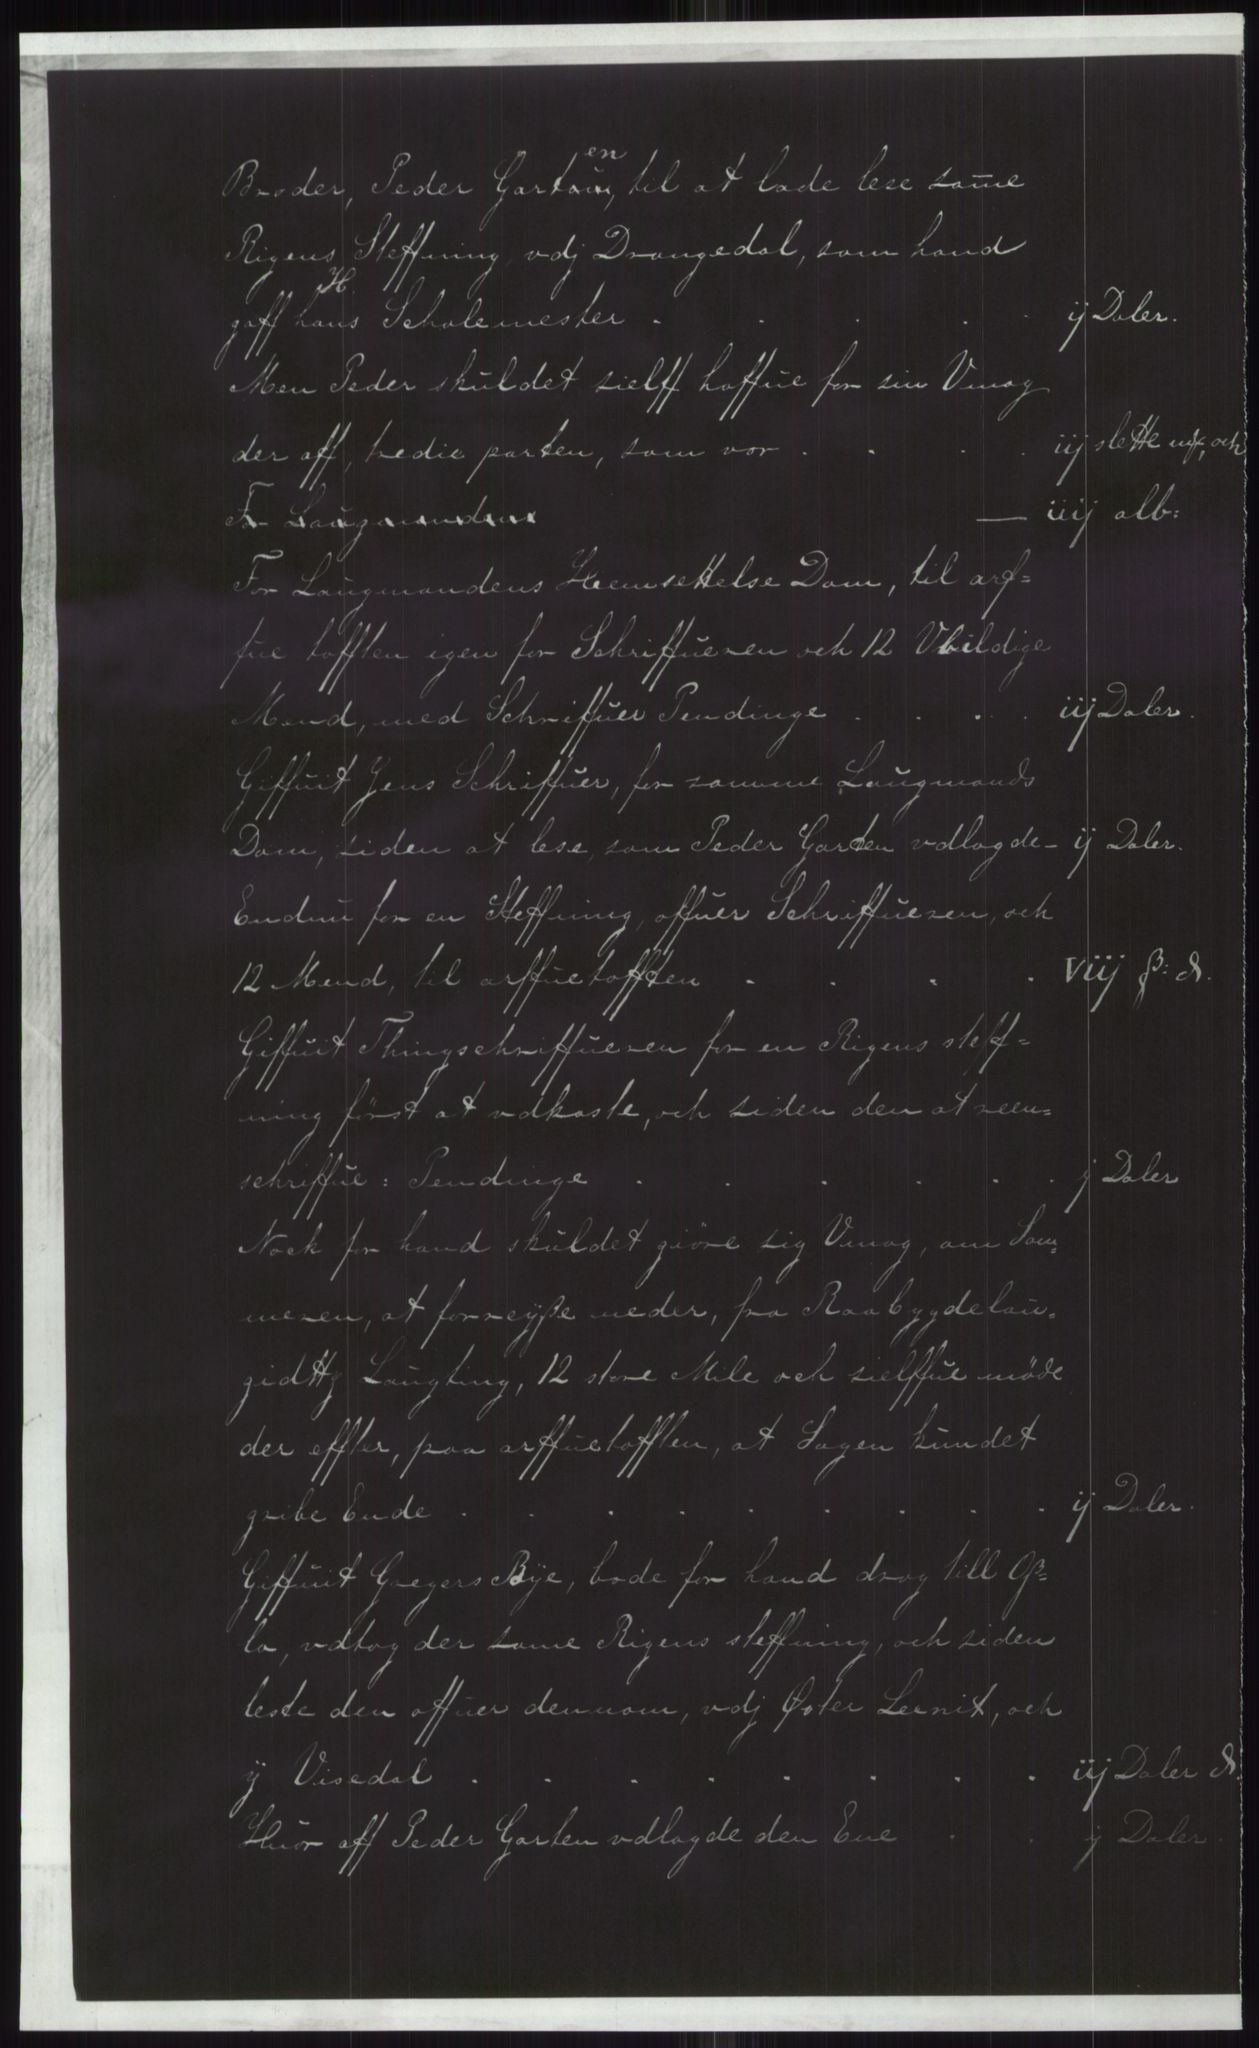 Broder, Peder Garten, til at lade lese same
Rigens Steffning, vdj Drangedal, som hand
gaff hans H Scholemester . . . . . ij Daler.
Men Peder skuldet sielff haffue for sin Vmag
der aff, tredie parten, som vor . . . . iij slette mk, och
For Laugmandens — iiij alb:
For Laugmandens Heemsettelse Dom, til arf=
fue tofften igen for Schriffueren och 12 Vbildige
Mend, med Schriffuer Pendinge . . . . iij Daler.
Giffuit Jens Schriffuer, for samme Laugmands
Dom, siden at lese, som Peder Garten vdlagde - ij Daler.
Endnu for en Steffning, offuer Schriffueren, och
12 Mend, til arffuetofften . . . . viij ß: d.
Giffuit Thingschriffueren for en Rigens steff=
ning först at vdkaste, och siden den at reen=
schriffue: Pendinge . . . . . . j Daler
Nock for hand skuldet giöre sig Vmag, om Som=
meren, at forreyße neder, fra Raabygdelau=
gidttz Laugting, 12 store Mile och sielffue möde
der effter, paa arffuetofften, at Sagen kundet
gribe Ende . . . . . . . . ij Daler.
Giffuit Gregers Bÿe, bode for hand drog till Oß=
lo, vdtog der same Rigens steffning, och siden
leste den offuer dennom, vdj Øster Leenit, och
ÿ Visedal . . . . . . . . iij Daler d.
Huor aff Peder Garten vdlagde den Ene . . j Daler.